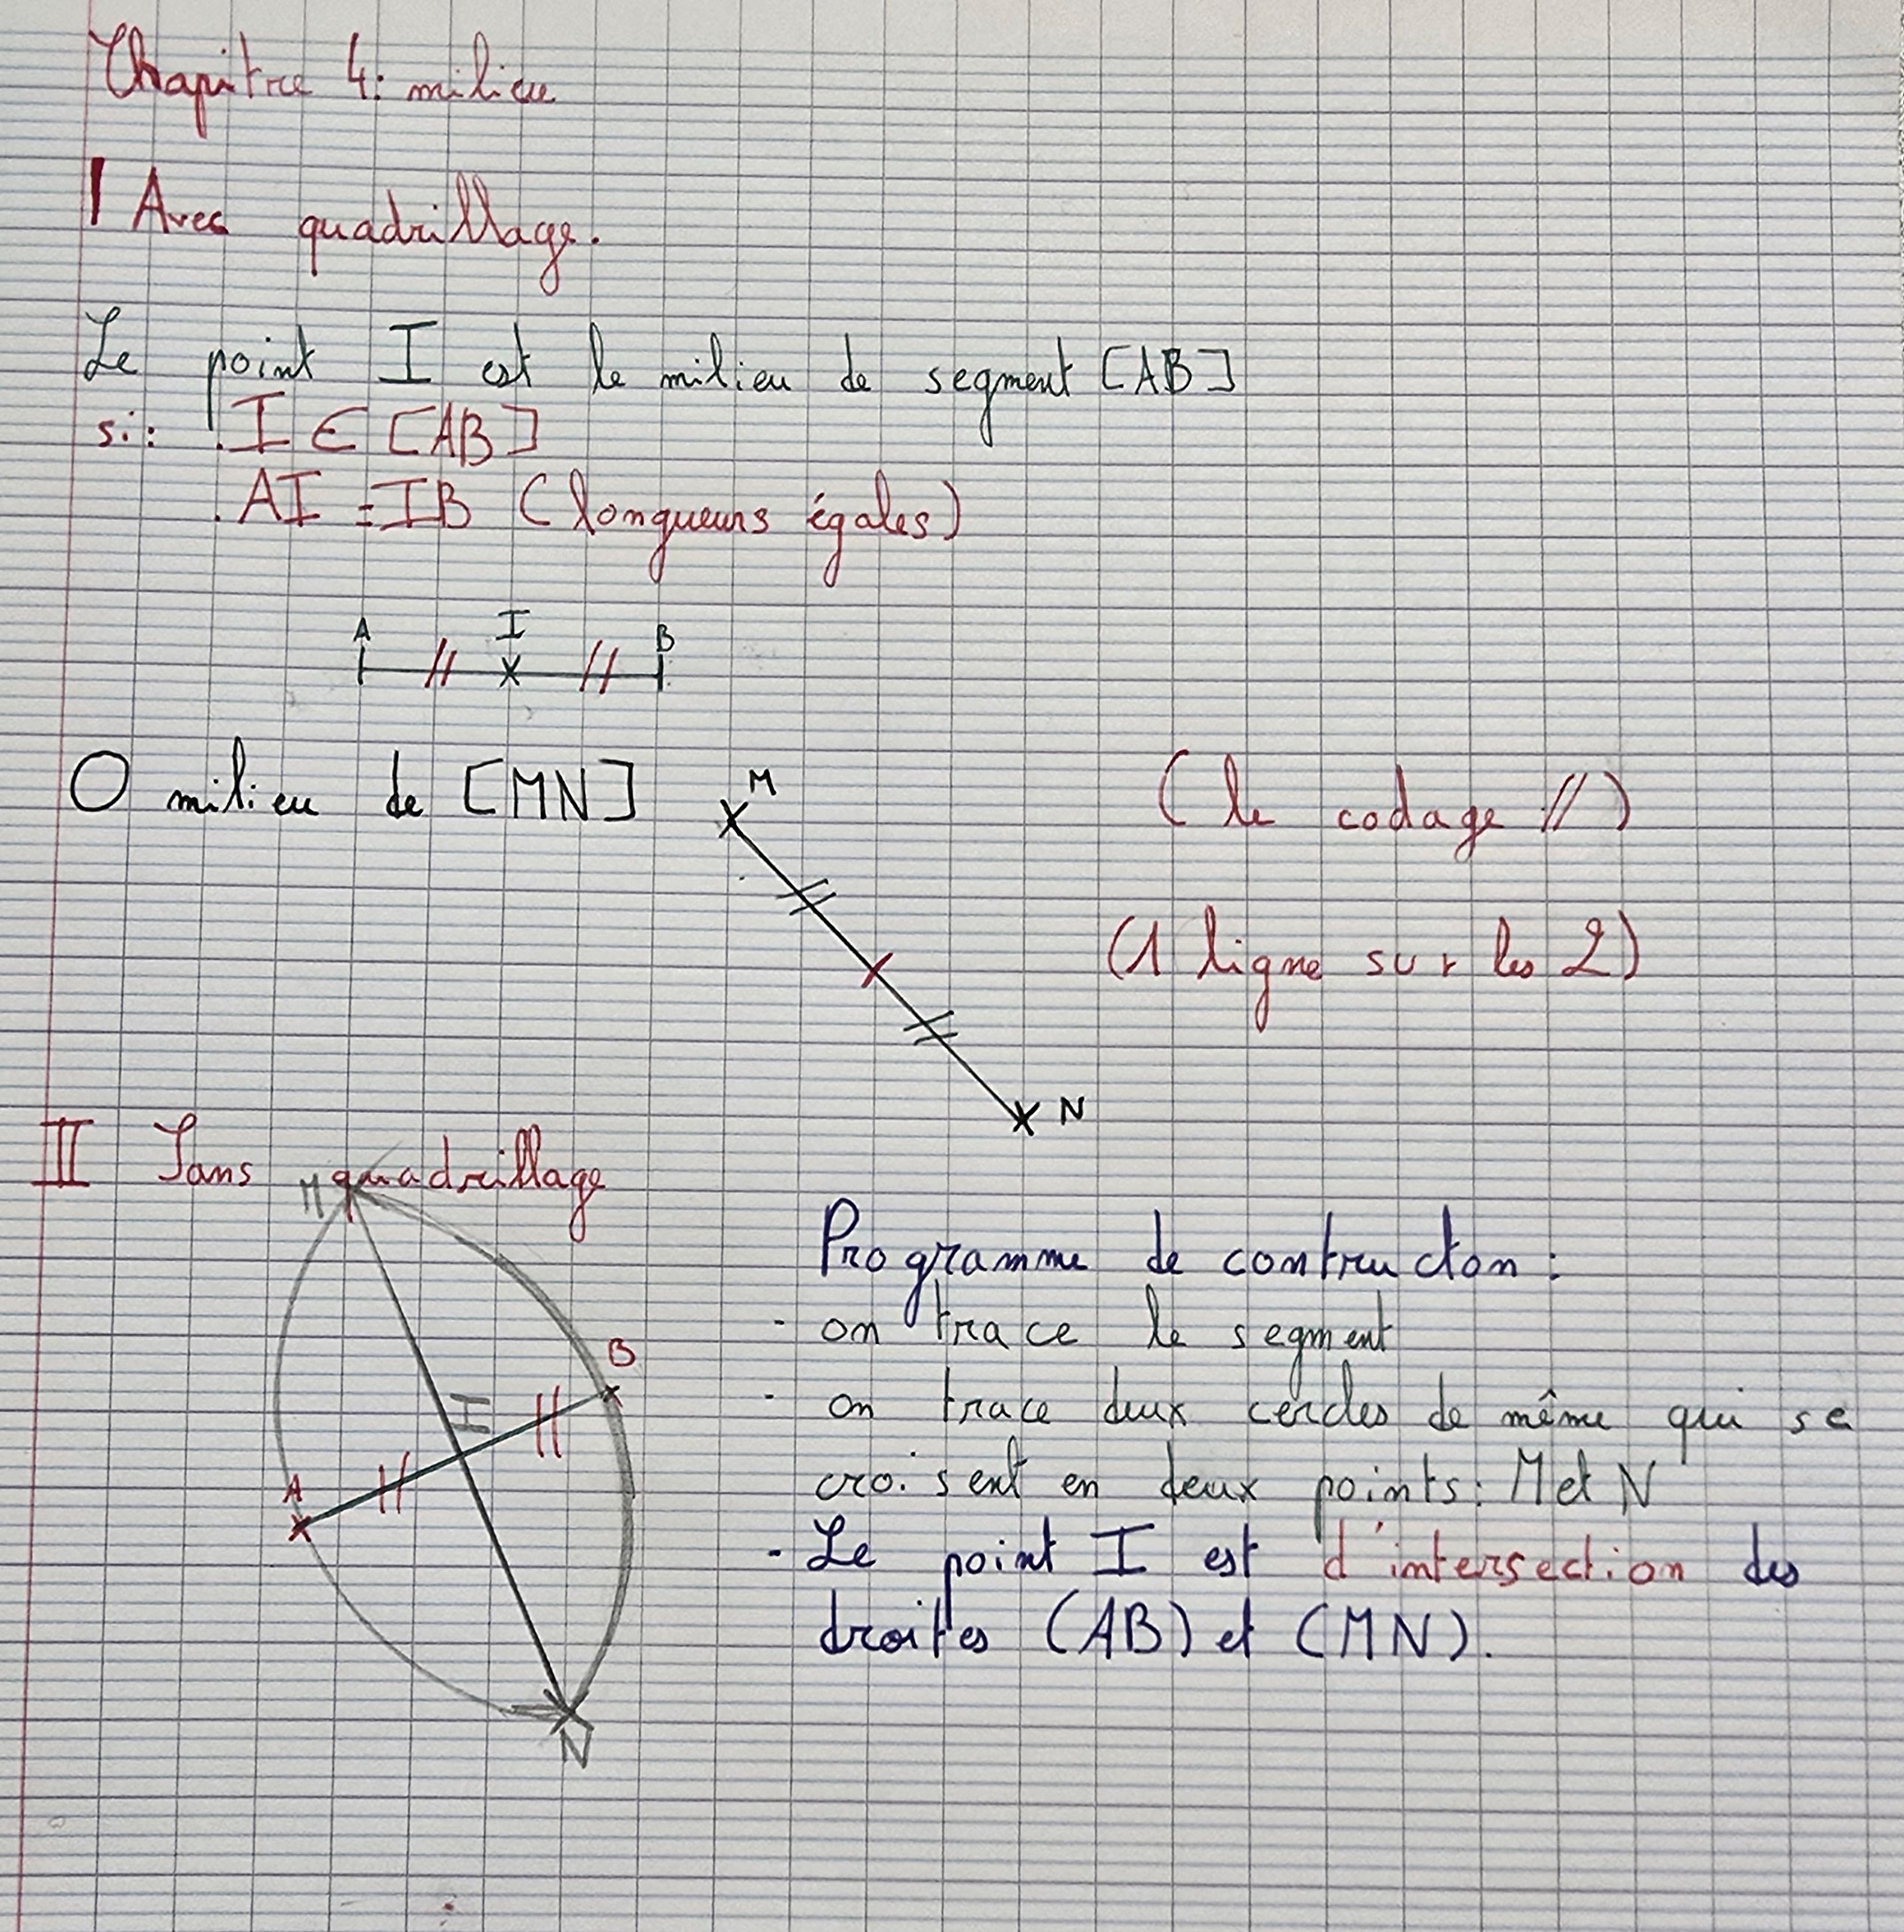 Chapitre 4: milieu
I Avec quadrillage.
Le point I est le milieu de segment [AB]
si: . I ∈ [AB]
. AI = IB (longueurs égales)
A I B
O milieu de [MN]
M
(le codage //)
(1 ligne sur les 2)
N
II Sans quadrillage
M
Programme de contructon :
- on trace le segment
B
- on trace deux cercles de même qui se
I
croisent en deux points: M et N
A
- Le point I est d'intersection des
droites (AB) et (MN).
N